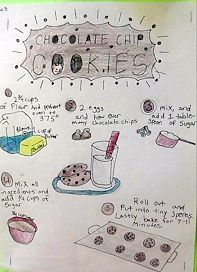 CHOCOLATE CHIP
COOKIES
2¼ cups
of flour and preheat
oven to
375°
2 eggs
and how ever
many chocolate chips
Mix, and
add 1 table-
spoon of Sugar
cup of
butter
Mix all
ingredients and
add ¾ cups of
Sugar
Roll out and
Put into tiny Spheres.
Lastly bake for 7-11
Minutes